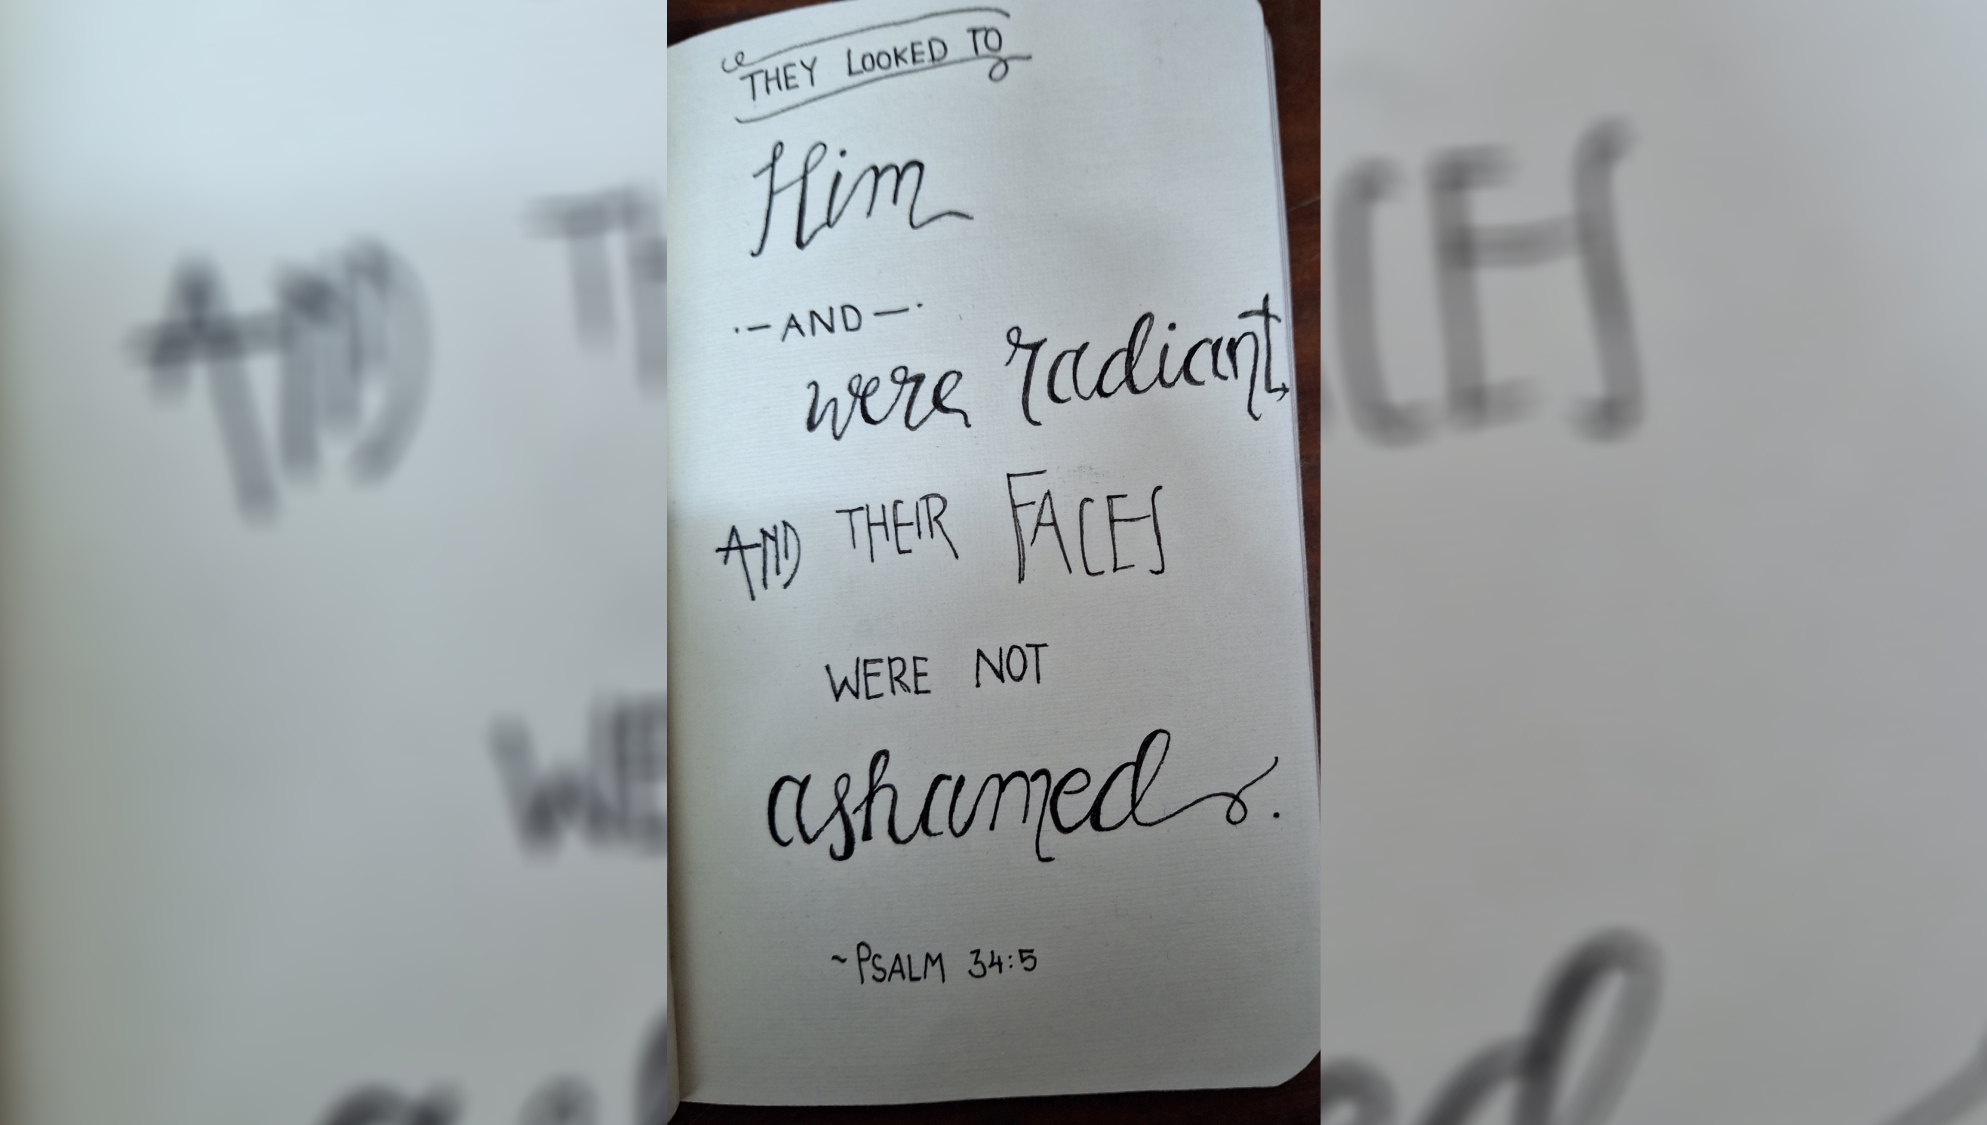 THEY LOOKED TO
Him
·—AND—·
were radiant,
AND THEIR FACES
WERE NOT
ashamed.
~PSALM 34:5